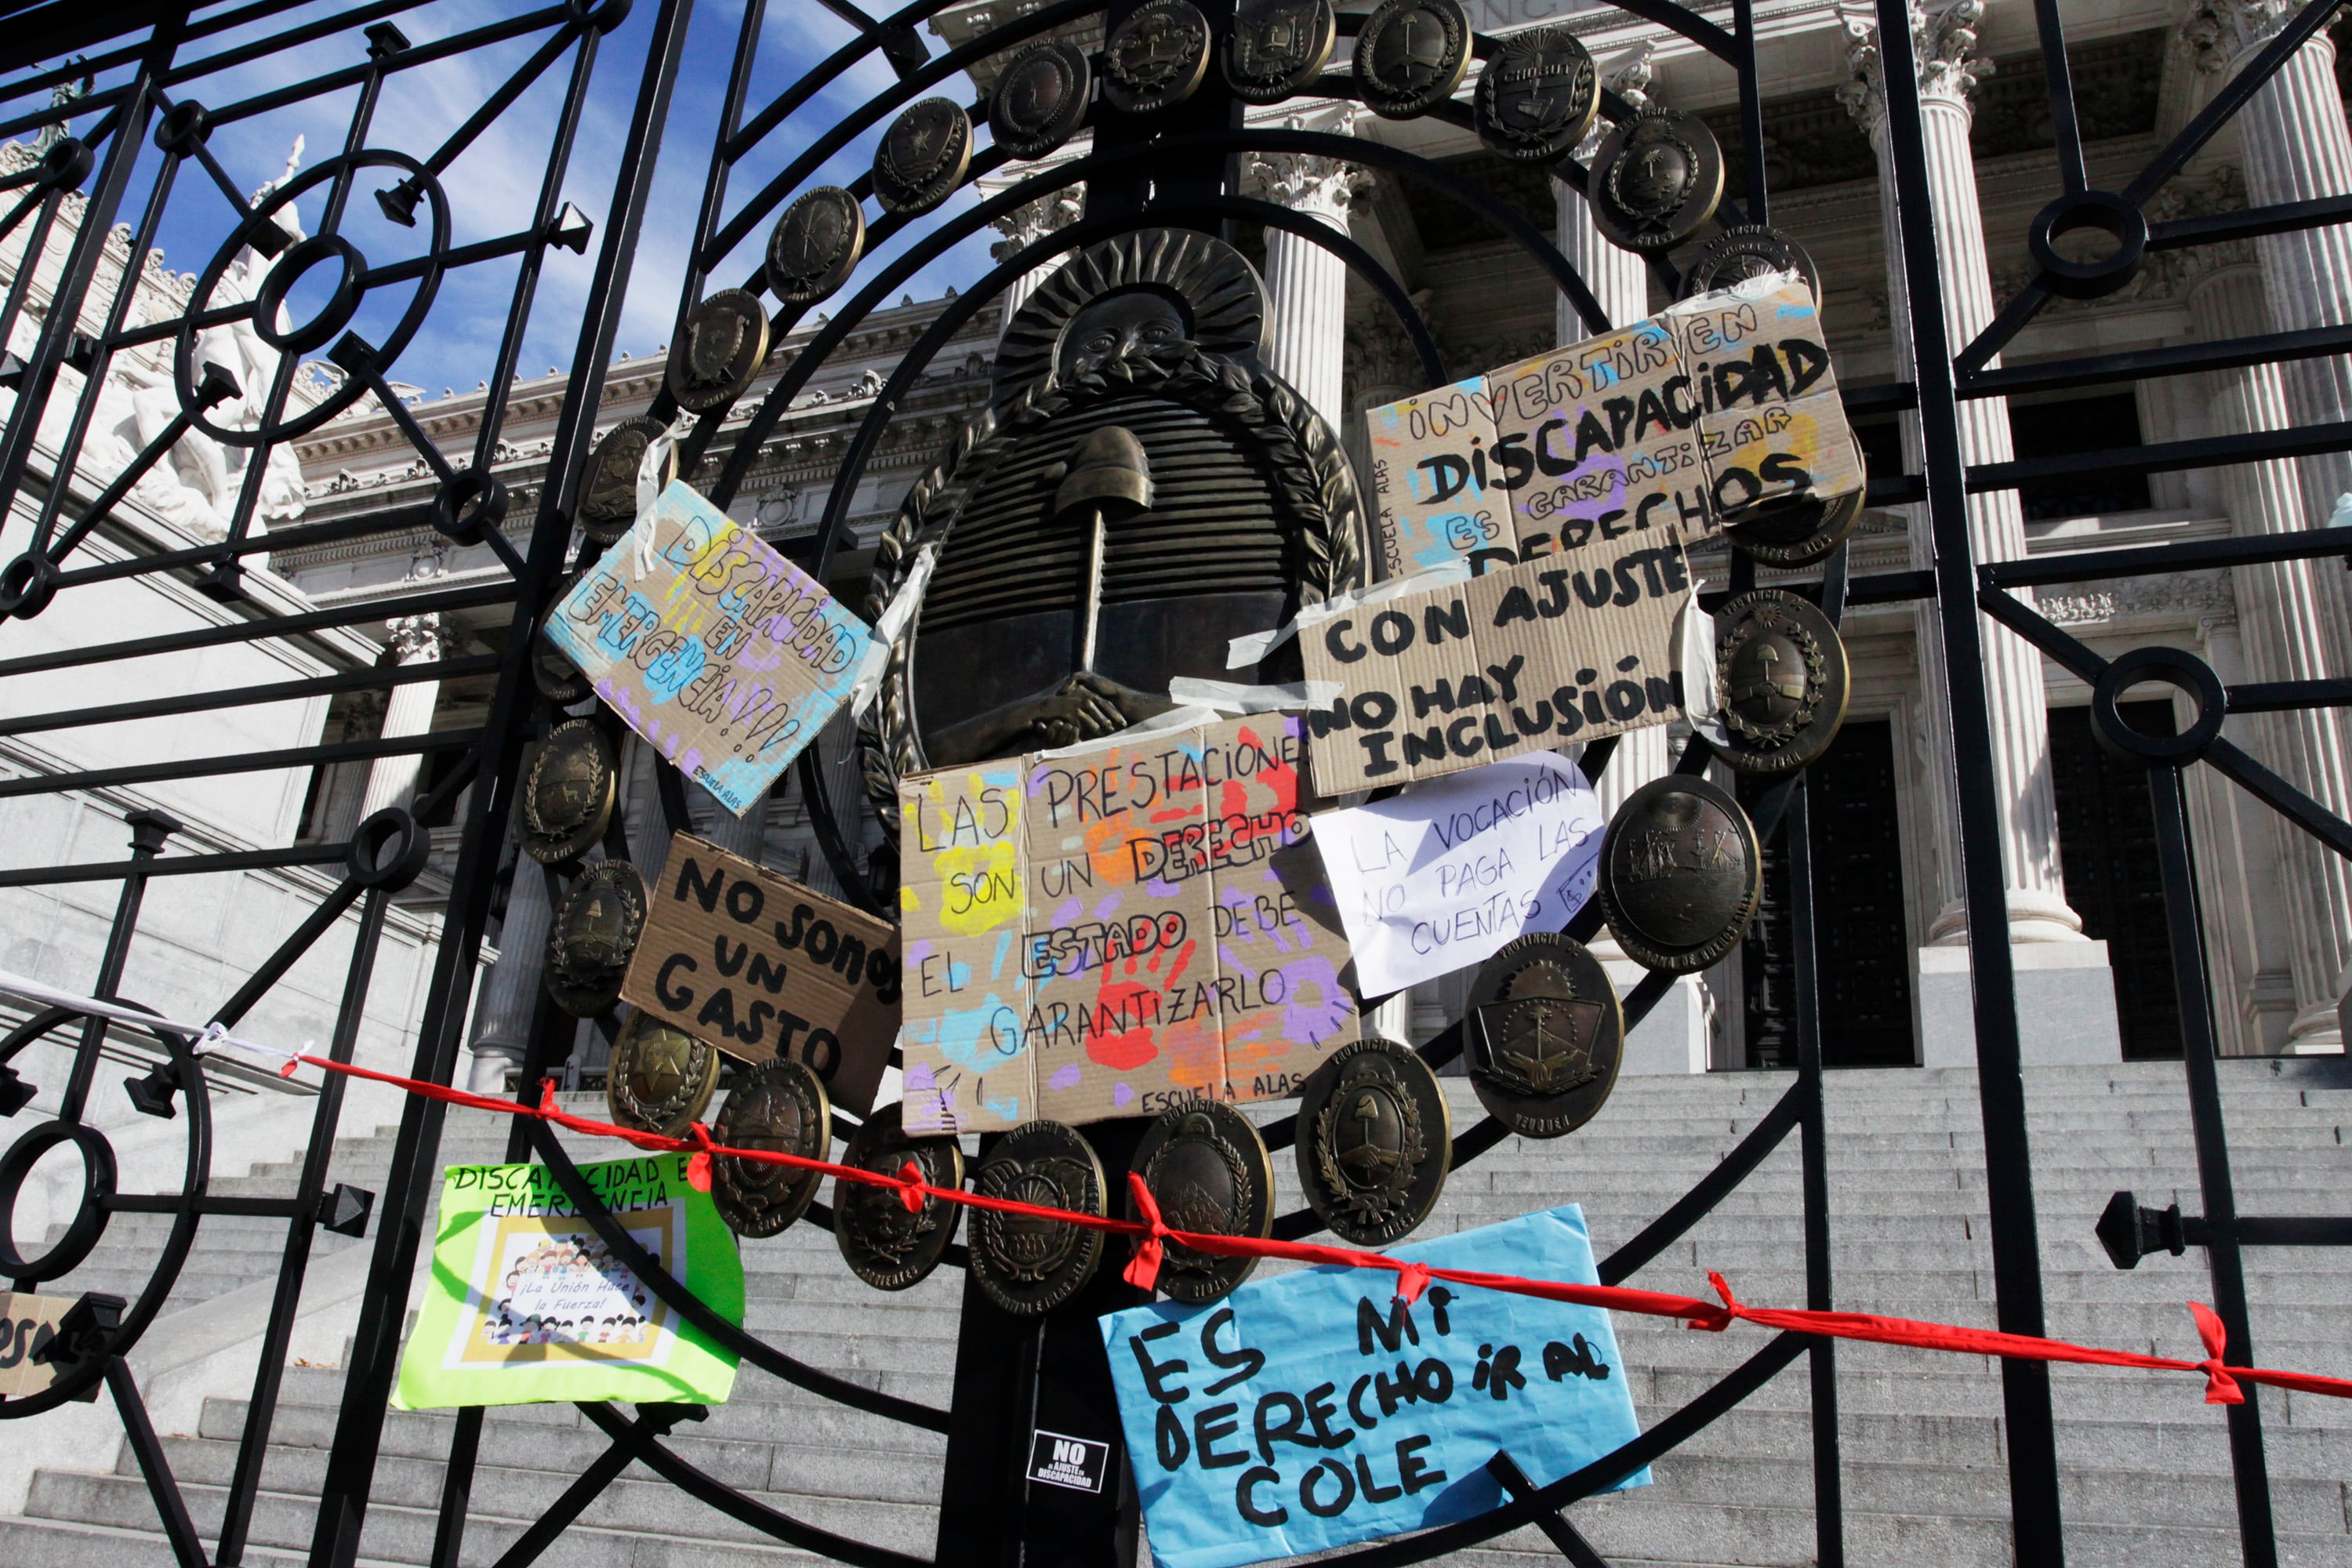 CHUBUT
CHACO
INVERTIR EN
DISCAPACIDAD
ES GARANTIZAR
DERECHOS
ESCUELA ALAS
DISCAPACIDAD
EN
EMERGENCIA!!!
ESCUELA ALAS
CON AJUSTE
NO HAY
INCLUSIÓN
LAS PRESTACIONE
SON UN DERECHO
EL ESTADO DEBE
GARANTIZARLO
ESCUELA ALAS
LA VOCACIÓN
NO PAGA LAS
CUENTAS
NO SOMOS
UN
GASTO
PROVINCIA DE
NEUQUEN
PROVINCIA DE
BUENOS AIRES
PROVINCIA
RIOJA
SAN LUIS
CORRIENTES
DISCAPACIDAD E
EMERGENCIA
¡La Unión Hace
la Fuerza!
ES MI
DERECHO IR AL
COLE
NO
AL AJUSTE EN
DISCAPACIDAD